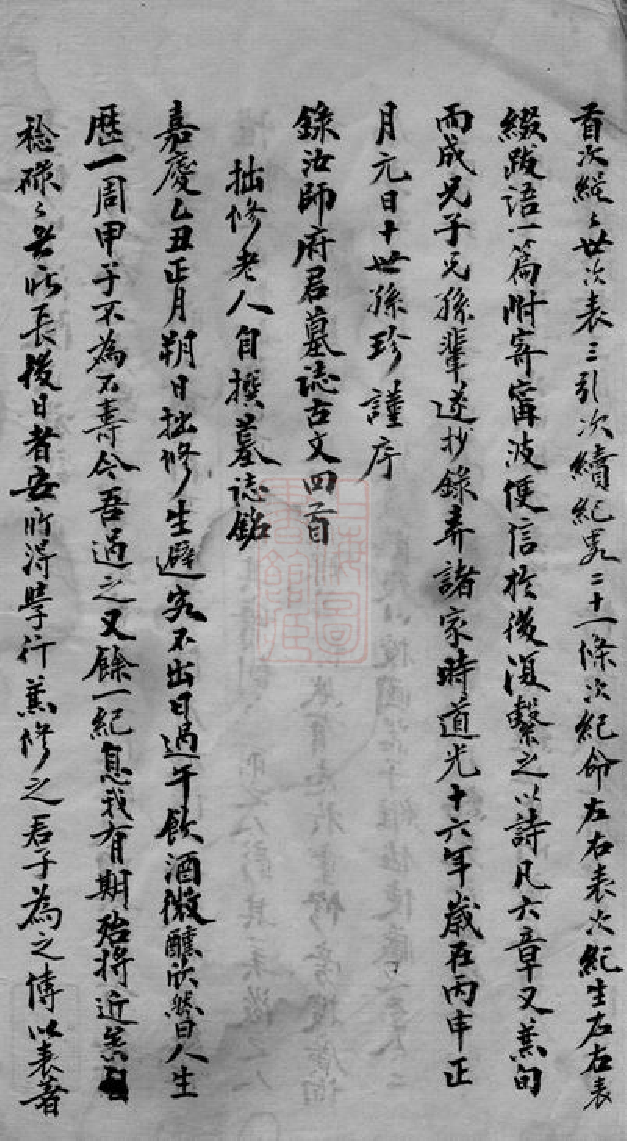 首次縱之世次表三引次續紀畧二十一條次紀命左右表次紀生左右表
綴跋語一篇附寄甯波便信於後復繫之以詩凡六章又兼旬
而成兄子兄孫輩遂抄錄弆諸家時道光十六年歲在丙申正
月元日十世孫珍謹序
錄汝師府君墓誌古文四首
拙修老人自撰墓誌銘
嘉慶乙丑正月朔日拙修生避客不出日過午飲酒微醺欣然曰人生
歷一周甲子不為不壽今吾過之又餘一紀息我有期殆將近矣
稔碌々無所長後日者安所得學行兼修之君子為之博以表著